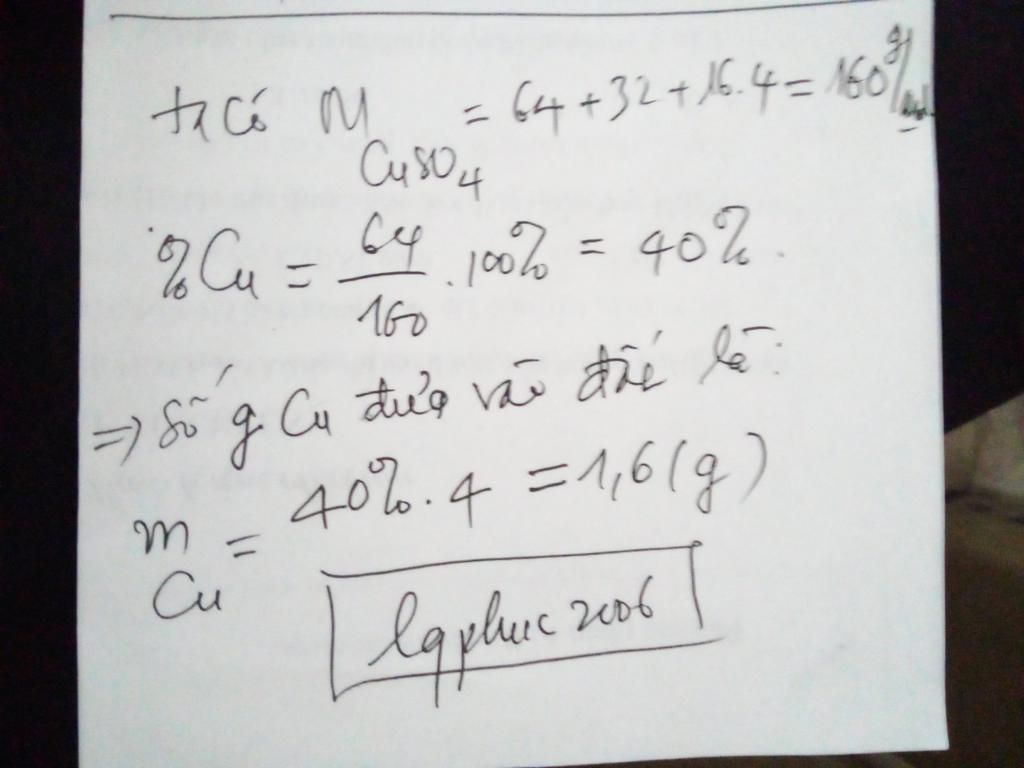 ta có M CuSO4 = 64 + 32 + 16.4 = 160 g/mol
%Cu = 64/160 . 100% = 40%.
=> Số g Cu đưa vào đất là:
m Cu = 40% . 4 = 1,6 (g)
lqphuc2006